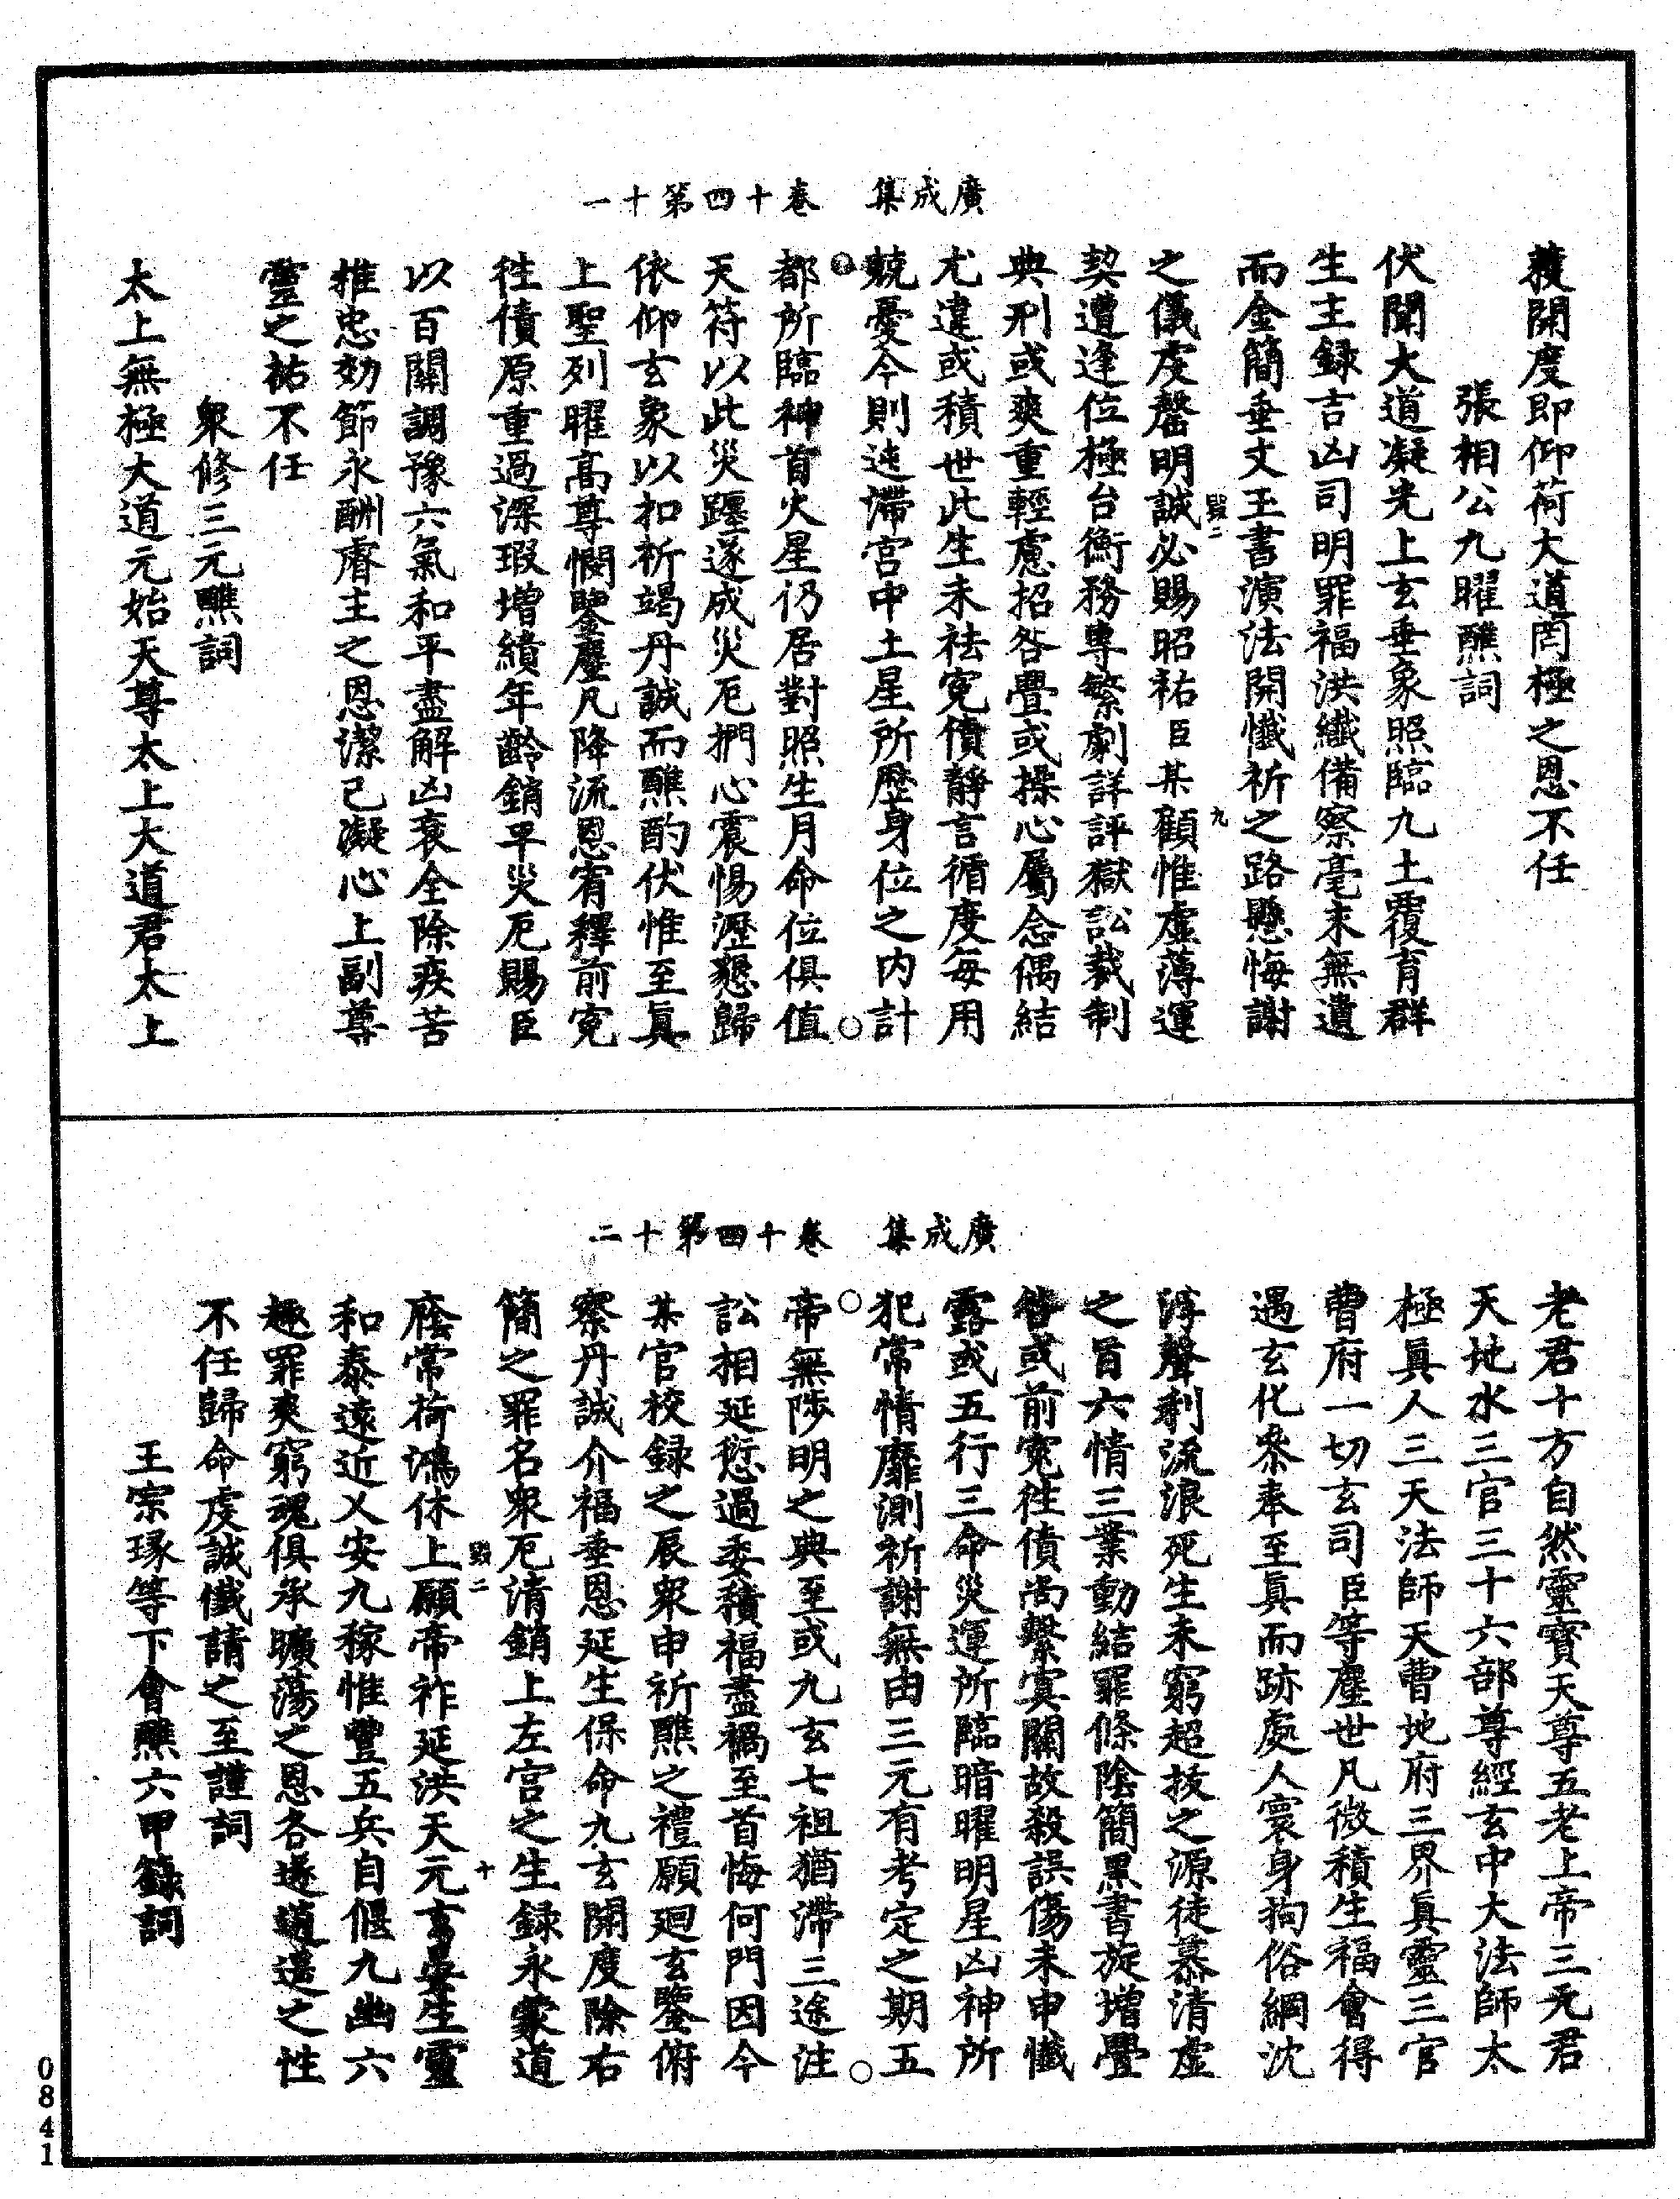 廣成集　卷十四第十一
蒙開度即仰荷大道罔極之恩不任
張相公九曜醮詞
伏聞大道凝光上玄垂象照臨九土覆育群
生主録吉凶司明罪福洪纖備察毫末無遺
而金簡垂文玉書演法開懺祈之路懸悔謝
毀二　九
之儀虔罄明誠必賜昭祐臣某顧惟虛薄運
契遭逢位極台衡務專繁劇詳評獄訟裁制
典刑或爽重輕慮招咎疊或操心屬念偶結
尤違或積世此生未祛寃債靜言循度每用
兢憂今則遶滯宮中土星所歷身位之内計
都所臨神首火星仍居對照生月命位俱值
天符以此災躔遂成災厄捫心震惕瀝懇歸
依仰玄象以扣祈竭丹誠而醮酌伏惟至眞
上聖列曜高尊憫鑒塵凡降流恩宥釋前寃
徃債原重過深瑕增續年齡銷平災厄賜臣
以百關調豫六氣和平盡解凶衰全除疾苦
推忠効節永酬睿主之恩潔己凝心上副尊
靈之祐不任
衆修三元醮詞
太上無極大道元始天尊太上大道君太上
廣成集　卷十四第十二
老君十方自然靈寶天尊五老上帝三元君
天地水三官三十六部尊經玄中大法師太
極眞人三天法師天曹地府三界眞靈三官
曹府一切玄司臣等塵世凡微積生福會得
遇玄化參奉至眞而跡處人寰身拘俗網沈
浮聲利流浪死生未窮超抜之源徒慕清虛
之旨六情三業動結罪條陰簡黑書旋增疊
咎或前寃徃債尚繫寞關故殺誤傷未申懺
露或五行三命災運所臨暗曜明星凶神所
犯常情靡測祈謝無由三元有考定之期五
帝無陟明之典至或九玄七祖猶滯三途注
訟相延愆過委積福盡禍至首悔何門因今
某官校録之辰衆申祈醮之禮願廻玄鑒俯
察丹誠介福垂恩延生保命九玄開度除右
簡之罪名衆厄清銷上左宮之生録永蒙道
廕常荷鴻休上願帝祚延洪天元   生靈
毀二　十
和泰遠近乂安九稼惟豐五兵自偃九幽六
趣罪爽窮魂俱承曠蕩之恩各遂逍遥之性
不任歸命虔誠懺請之至謹詞
王宗瑑等下會醮六甲籙詞
0841